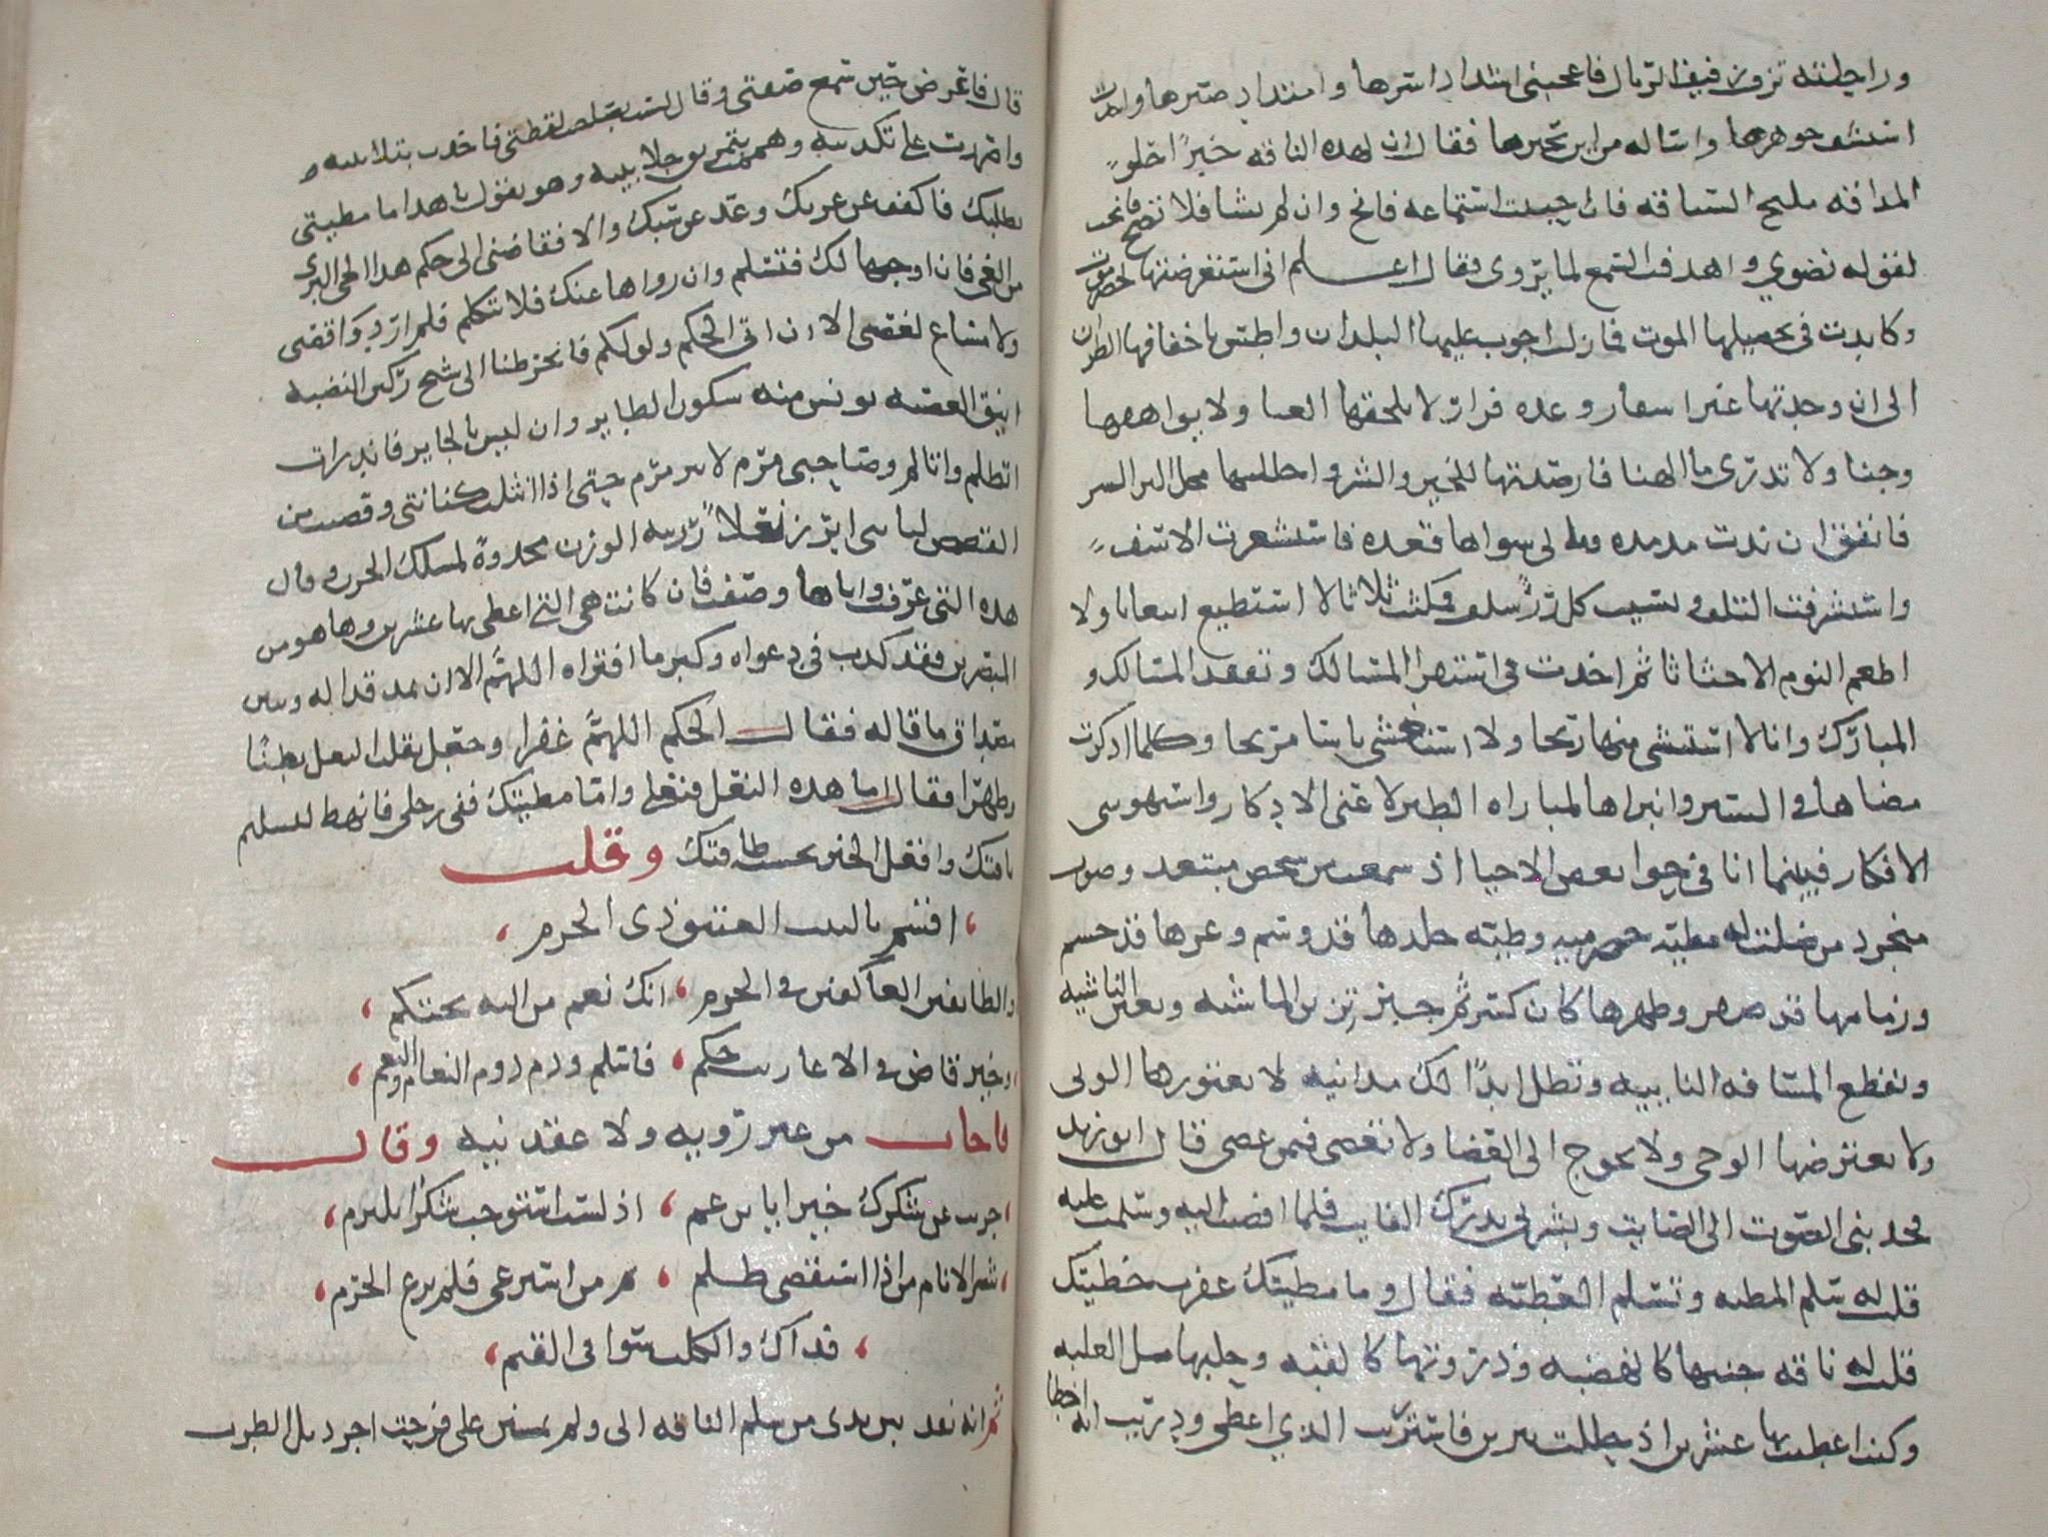 وراحلته تزف زفيف الريال فاعجبني اشتداد اسرها وامتداد صبرها واخذت
استشف جوهرها واساله من اين تخيرها فقال ان لهذه الناقه خبرًا حلو
المذاقه مليح السياقه فان احببت استماعه فانخ وان لم تشا فلا تصخ فانخت
لقوله نضوي واهدفت السمع لما يروى فقال اعلم انى استعرضتها بحضرموت
وكابدت فى تحصيلها الموت فما زلت اجوب عليها البلدان واطس باخفافها الظران
الى ان وجدتها عبر اسفار وعده قرار لا يلحقها العنا ولا يواهقها
وجنا ولا تدرى ما الهنا فارصدتها للخير والشر واحللتها محل البر السر
فاتفق ان ندت مذ مده وما لى سواها قعده فاستشعرت الاسف
واستشرفت التلف ونسيت كل رزء سلف ومكثت ثلاثا لا استطيع انبعاثا ولا
اطعم النوم الا حثاثا ثم اخذت فى استقرا المسالك وتفقد المسالك و
المبارك وانا لا استنشى منها ريحا ولا استغشى ياسا مريحا وكلما ادكرت
مضاها فى السير وانبراها لمباراه الطير لاعنى الادكار واستهوتنى
الافكار فبينما انا فى حوا بعض الاحيا اذ سمعت من شخص مبتعد وصوت
متجرد من ضلت له مطيه حضرميه وطيه جلدها قد وسم وعرها قد حسم
وزمامها قد ضفر وظهرها كان كسر ثم جبر تزين الماشيه وتعين الناشيه
وتقطع المسافه النائيه وتظل ابدًا لك مدانيه لا يعتورها الونى
ولا يعترضها الوجى ولا تحوج الى العصا ولا تعصى فيمن عصى قال ابو زيد
فجذبنى الصوت الى الصايت وبشرنى بدرك الفايت فلما افضيت اليه وسلمت عليه
قلت له سلم المطيه وتسلم العطيه فقال وما مطيتك غفرت خطيتك
قلت له ناقه جثتها كالهضبه وذروتها كالقبه وحلبها مل العلبه
وكنت اعطيت بها عشرين اذ حللت يبرين فاستزدت الذي اعطى ودريت انه اخطا
قال فاعرض حين سمع صفتى وقال لست بصاحب لقطتى فاخذت بتلابيبه و
واصررت على تكذيبه وهممت بتمزيق جلابيبه وهو يقول يا هذا ما مطيتى
بطلبتك فاكفف عن غربك وعد عن سبك والا فقاضنى الى حكم هذا الحى البرى
من الغى فان اوجبها لك فتسلم وان زواها عنك فلا تتكلم فلم ار دوا قصتى
ولا مساغ لغصتى الا ان اتى الحكم ولو لكم فانخرطنا الى شيخ ركين النصبه
انيق العصبه يونس منه سكون الطاير وان ليس بالجاير فاندرات
اتظلم واتالم وصاحبى مرم لا يترمرم حتى اذا نثلت كنانتى وقضيت من
القصص لبانتى ابرز نعلاً رزينه الوزن محذوة لمسلك الحزن وقال
هذه التى عرفت واياها وصفت فان كانت هى التى اعطى بها عشرين وها هو من
المبصرين فقد كذب فى دعواه وكبر ما افتراه اللهم الا ان يمد قذاله ويبين
مصداق ما قاله فقال الحكم اللهم غفرا وجعل يقلب النعل بطنًا
وظهرًا فقال اما هذه النعل فنعلى واما مطيتك ففى رحلى فانهض لتسلم
ناقتك وافعل الخير بحسب طاقتك وقلت
اقسم بالبيت العتيق ذى الحرم
والطايفين العاكفين فى الحرم انك نعم من اليه يحتكم
وخير قاض فى الاعاريب حكم فاسلم ودم دوم النعام والنعم
فاجاب من غير رويه ولا عقد نيه وقال
جزيت عن شكرك خيرا يا بن عم اذ لست استوجب شكرًا يلتزم
شر الانام من اذا استقضى ظلم ثم من استرعى فلم يرع الحرم
فذاك والكلب سوا فى القيم
ثم انه نفذ بين يدى من سلم الناقه الى ولم يمتن على فرحت اجر ذيل الطرب